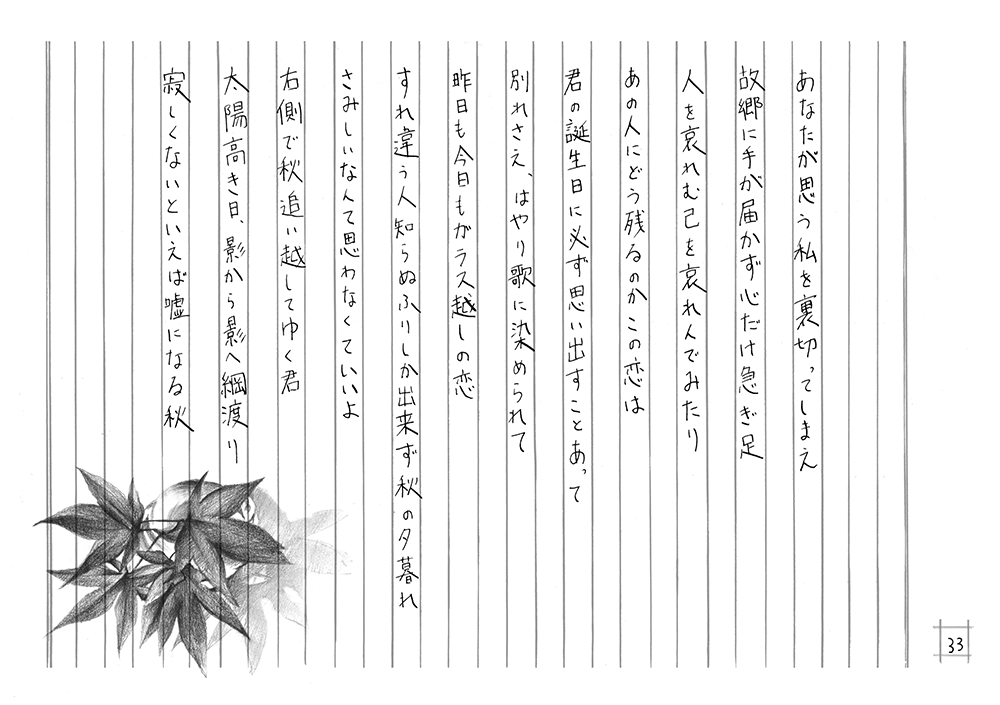 あなたが思う私を裏切ってしまえ
故郷に手が届かず心だけ急ぎ足
人を哀れむ己を哀れんでみたり
あの人にどう残るのかこの恋は
君の誕生日に必ず思い出すことあって
別れさえ、はやり歌に染められて
昨日も今日もガラス越しの恋
すれ違う人知らぬふりしか出来ず秋の夕暮れ
さみしいなんて思わなくていいよ
右側で秋追い越してゆく君
太陽高き日、影から影へ綱渡り
寂しくないといえば嘘になる秋
33